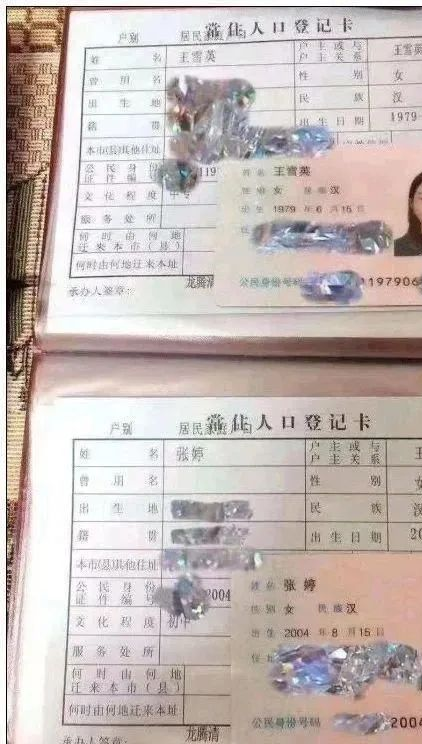 常住人口登记卡
户别 居民家庭户口
姓名 王雪英 户主或与户主关系 王雪英
曾用名 性别 女
出生地 民族 汉
籍贯 出生日期 1979
本市(县)其他住址
公民身份证件编号 119
文化程度 中专
服务处所
何时由何地迁来本市(县)
何时由何地迁来本址
承办人签章: 龙腾清
姓名 王雪英
性别 女 民族 汉
出生 1979 年 6 月 15 日
住
公民身份号码 1197906
常住人口登记卡
户别 居民家庭户口
姓名 张婷 户主或与户主关系 王
曾用名 性别 女
出生地 民族 汉
籍贯 出生日期 20
本市(县)其他住址
公民身份证件编号 2004
文化程度 初中
服务处所
何时由何地迁来本市(县)
何时由何地迁来本址
承办人签章: 龙腾清
姓名 张婷
性别 女 民族 汉
出生 2004 年 8 月 15 日
住址
公民身份号码 2004